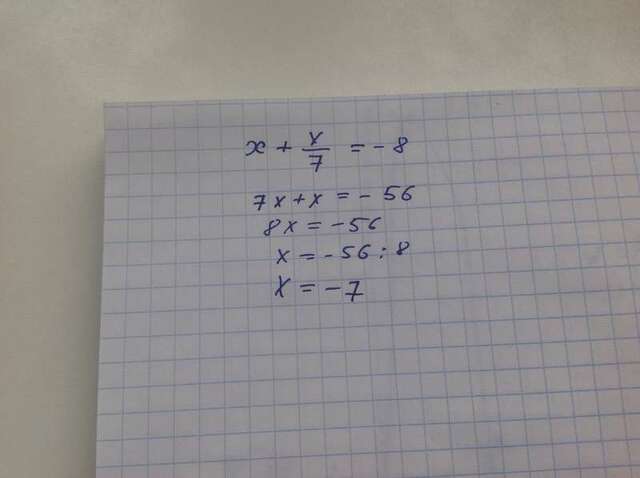 x + x/7 = - 8
7x + x = - 56
8x = -56
x = -56 : 8
x = -7